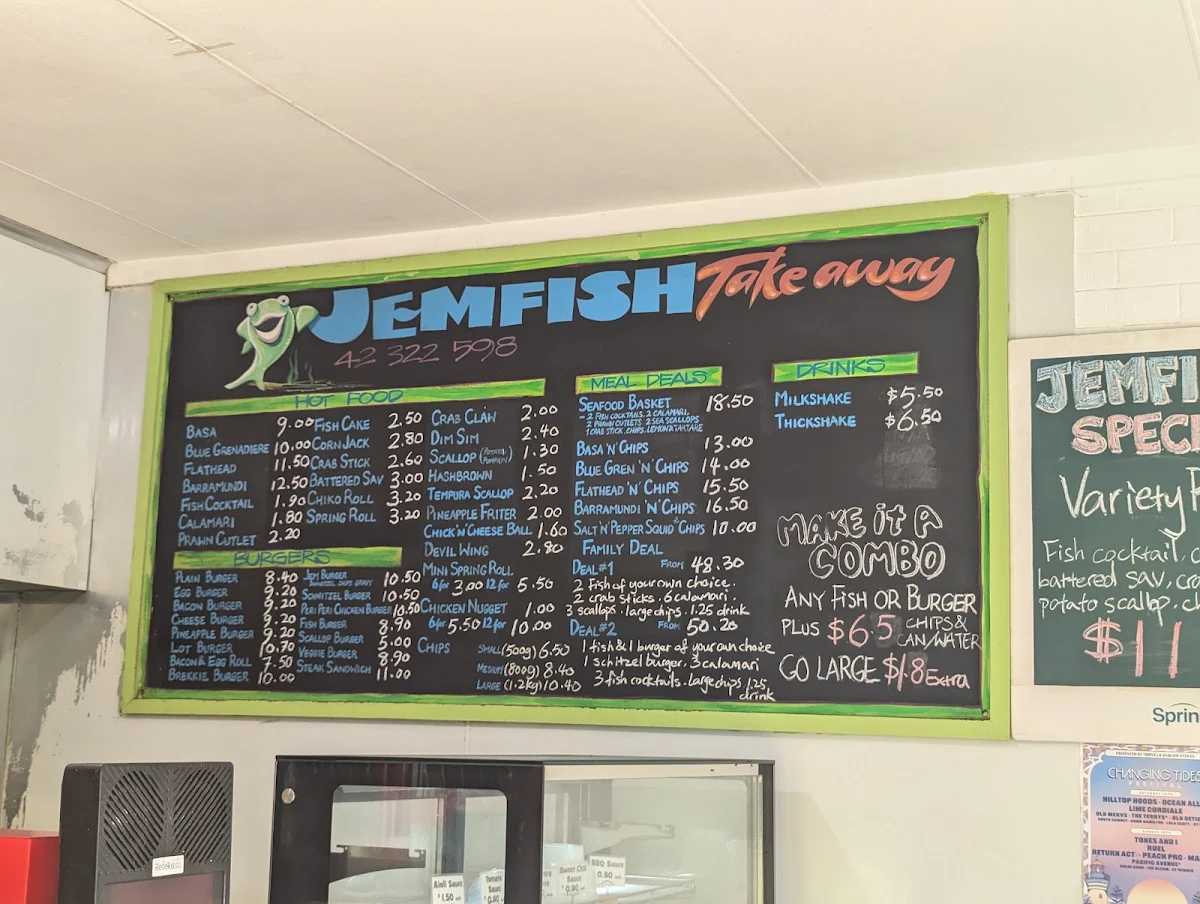 JEMFISH Take away
42 322 598
HOT FOOD
BASA 9.00
BLUE GRENADIERE 10.00
FLATHEAD 11.50
BARRAMUNDI 12.50
FISH COCKTAIL 1.90
CALAMARI 1.80
PRAWN CUTLET 2.20
FISH CAKE 2.50
CORN JACK 2.80
CRAB STICK 2.60
BATTERED SAV 3.00
CHIKO ROLL 3.20
SPRING ROLL 3.20
CRAB CLAW 2.00
DIM SIM 2.40
SCALLOP (POTATO, PUMPKIN) 1.30
HASHBROWN 1.50
TEMPURA SCALLOP 2.20
PINEAPPLE FRITER 2.00
CHICK'N'CHEESE BALL 1.60
DEVIL WING 2.80
MINI SPRING ROLL
6 for 3.00 12 for 5.50
CHICKEN NUGGET 1.00
6 for 5.50 12 for 10.00
CHIPS SMALL (500g) 6.50
MEDIUM (800g) 8.40
LARGE (1.2kg) 10.40
BURGERS
PLAIN BURGER 8.40
EGG BURGER 9.20
BACON BURGER 9.20
CHEESE BURGER 9.20
PINEAPPLE BURGER 9.20
LOT BURGER 10.70
BACON & EGG ROLL 7.50
BREKKIE BURGER 10.00
JEM BURGER 10.50
SCHNITZEL CHIPS GRAVY
SCHNITZEL BURGER 10.50
PERI PERI CHICKEN BURGER 10.50
FISH BURGER 8.90
SCALLOP BURGER 5.00
VEGGIE BURGER 8.90
STEAK SANDWICH 11.00
MEAL DEALS
SEAFOOD BASKET 18.50
- 2 FISH COCKTAILS, 2 CALAMARI,
2 PRAWN CUTLETS 2 SEA SCALLOPS
1 CRAB STICK, CHIPS, LEMON & TARTARE
BASA 'N' CHIPS 13.00
BLUE GREN 'N' CHIPS 14.00
FLATHEAD 'N' CHIPS 15.50
BARRAMUNDI 'N' CHIPS 16.50
SALT'N'PEPPER SQUID & CHIPS 10.00
FAMILY DEAL
DEAL #1 FROM 48.30
2 Fish of your own choice.
2 crab sticks. 6 calamari.
3 scallops. large chips. 1.25 drink
DEAL #2 FROM 50.20
1 fish & 1 burger of your own choice
1 schitzel burger. 3 calamari
3 fish cocktails. Large chips 1.25
drink
DRINKS
MILKSHAKE $5.50
THICKSHAKE $6.50
MAKE iT A
COMBO
ANY FISH OR BURGER
PLUS $6.5 CHIPS &
CAN/WATER
GO LARGE $1.8 Extra
JEMFI
SPEC
Variety
Fish cocktail,
battered sav,
potato scallop.
$11
Sprin
CHANGING TIDES
FESTIVAL
HILLTOP HOODS · OCEAN AL
LIME CORDIALE
OLD MERVS · THE TERRYS
TONES AND I
RUEL
RETURN ACT · PEACH PRC
PACIFIC AVENUE
Retekess
Aioli Sauce
$1.50
Tomato
Sauce
$0.80
Sweet Chili
Sauce
$0.80
BBQ Sauce
0.80